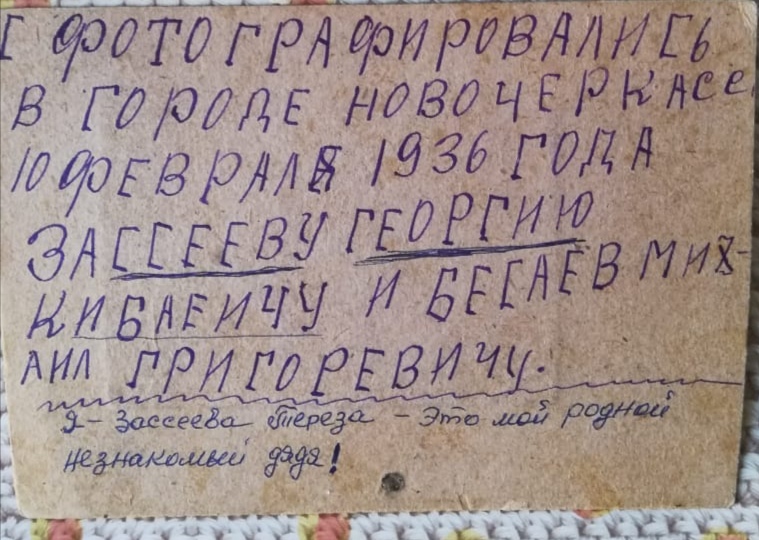 СФОТОГРАФИРОВАЛИСЬ
В ГОРОДЕ НОВОЧЕРКАССЕ
10 ФЕВРАЛЯ 1936 ГОДА
ЗАССЕЕВУ ГЕОРГИЮ
КИБАЕИЧУ И БЕСАЕВ МИХ-
АИЛ ГРИГОРЕВИЧУ.
Я - Зассеева Тереза - Это мой родной
незнакомый дядя!